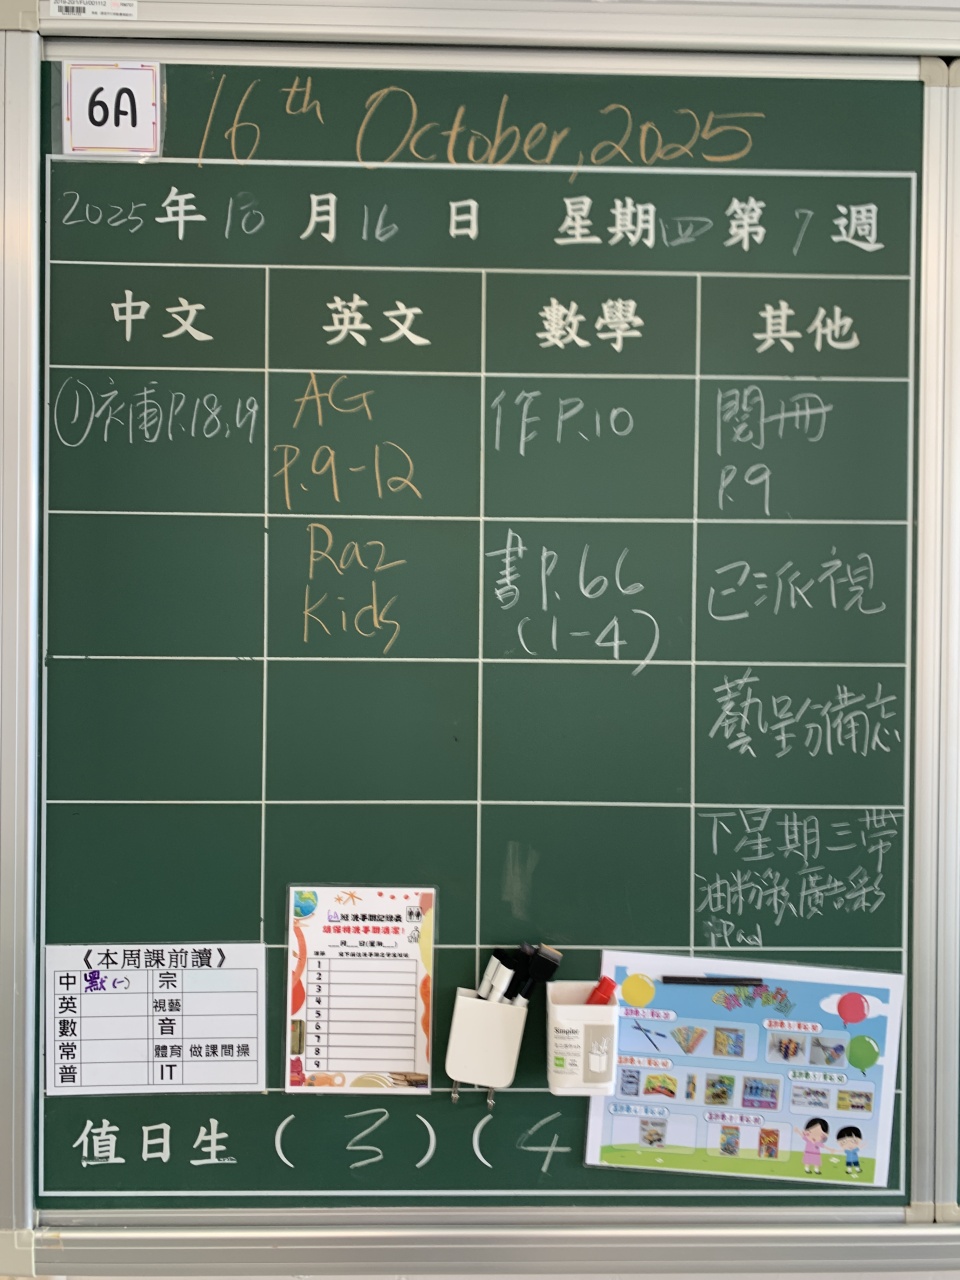 6A
16th October, 2025
2025年10月16日 星期四第7週
中文 英文 數學 其他
①衣補P.18,19
AG
P.9-12
作P.10
閱冊
P.9
Raz
Kids
書P.66
(1-4)
已派視
藝呈分備忘
下星期三帶
油粉彩,廣告彩
iPad
《本周課前讀》
中 默(一) 宗
英 視藝
數 音
常 體育 做課間操
普 IT
6A班洗手間記錄表
1
2
3
4
5
6
7
8
9
Simplee
值日生 (3) (4